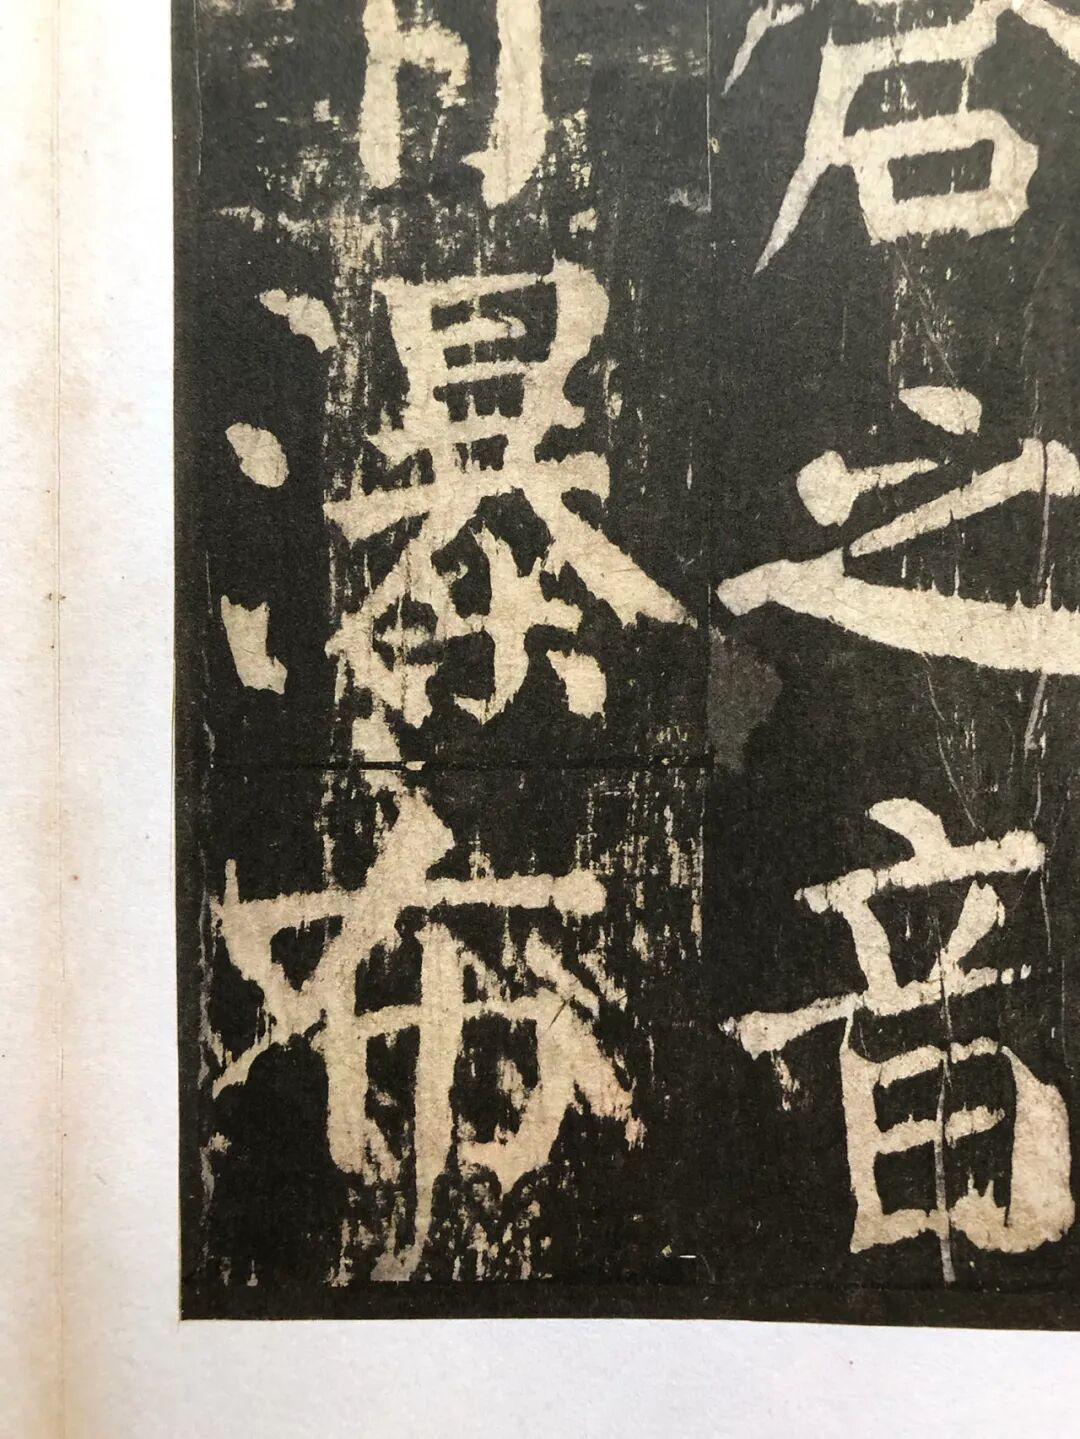 之音
瀑布